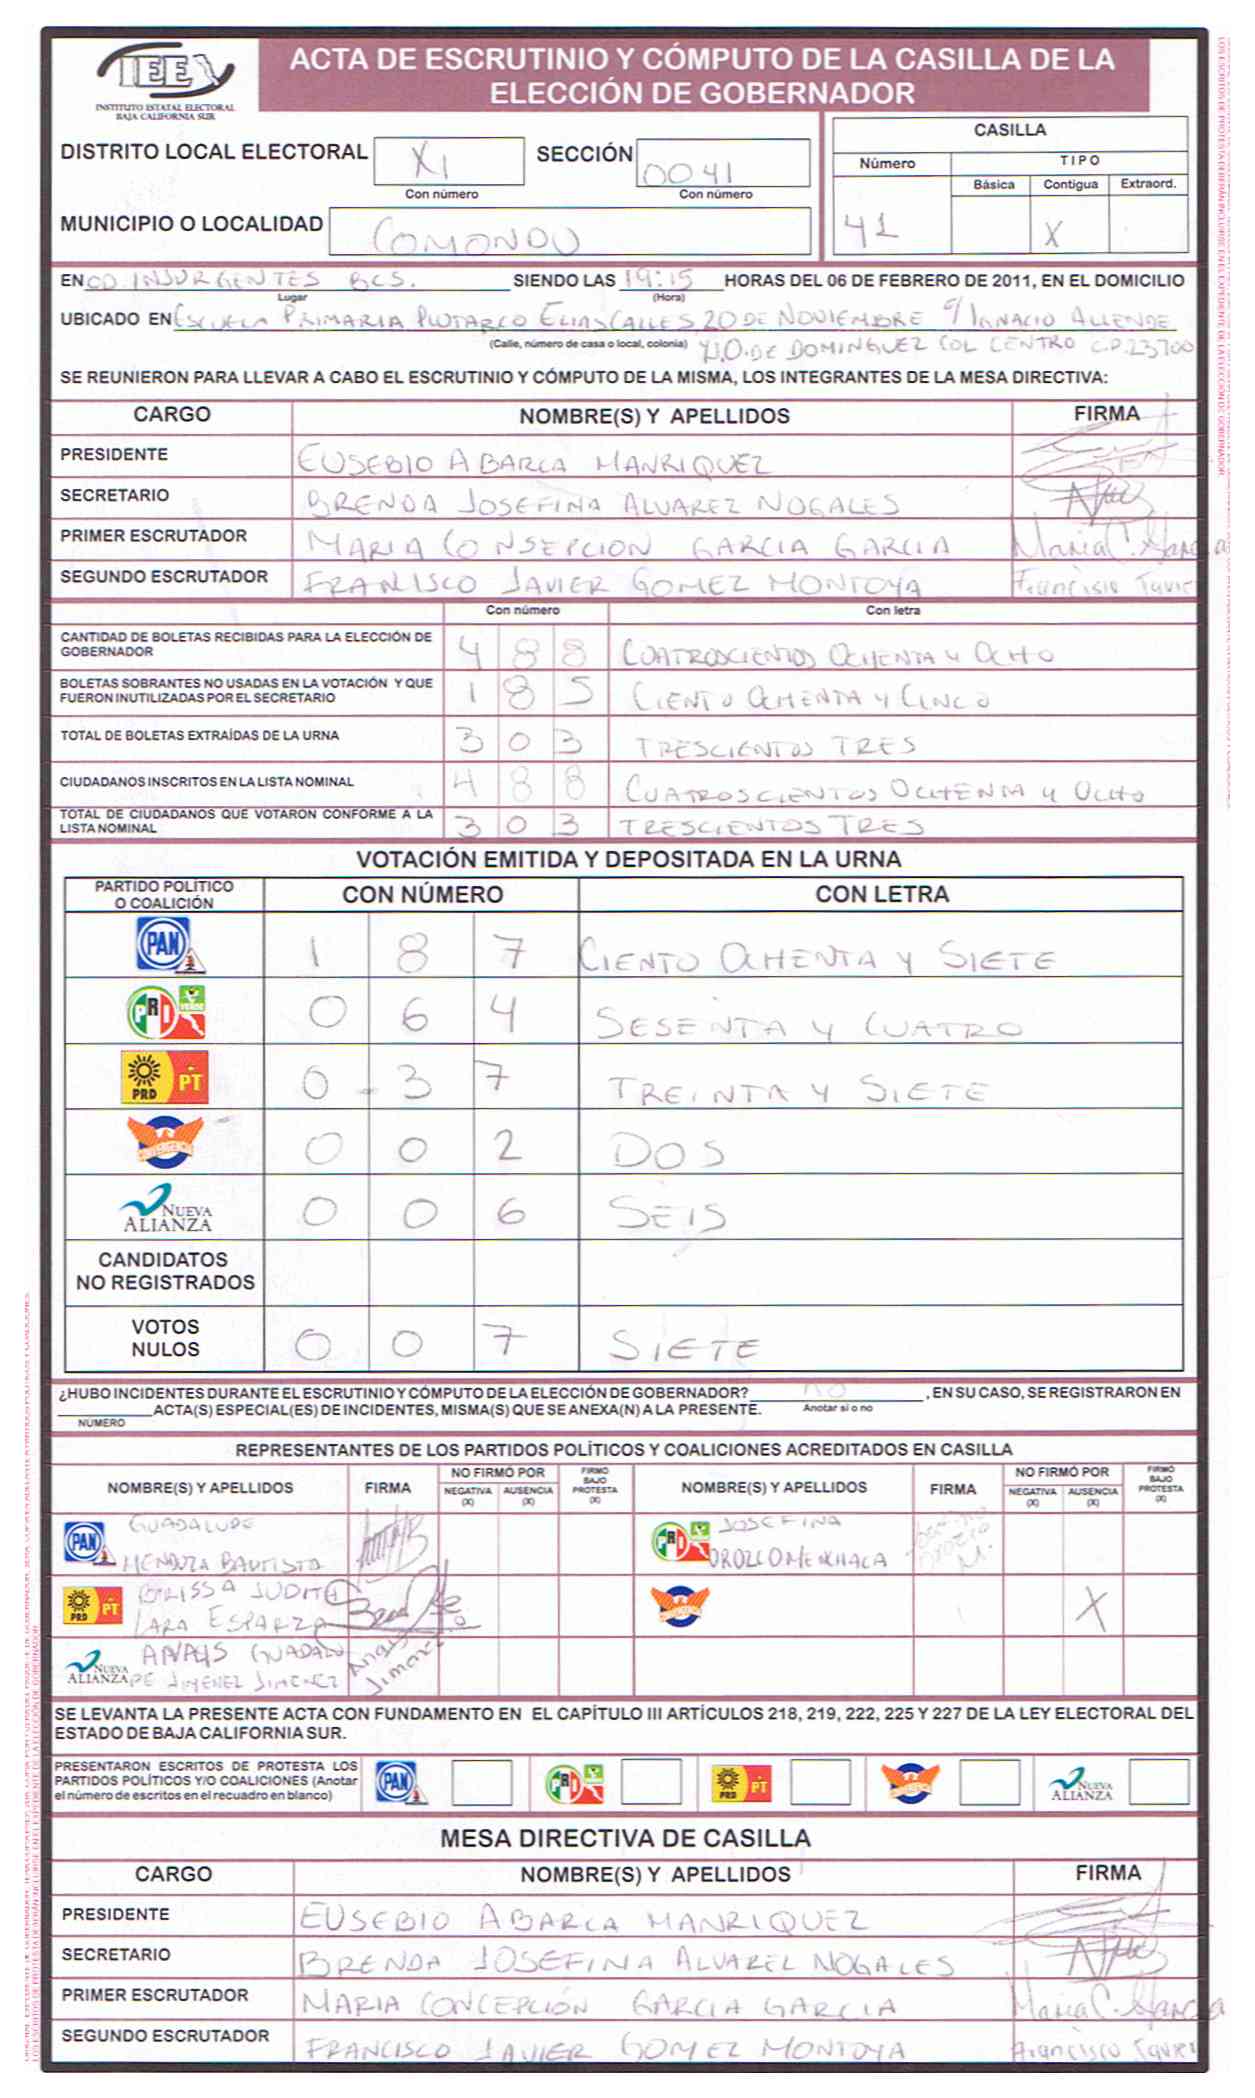 IEE
INSTITUTO ESTATAL ELECTORAL
BAJA CALIFORNIA SUR
ACTA DE ESCRUTINIO Y CÓMPUTO DE LA CASILLA DE LA
ELECCIÓN DE GOBERNADOR
DISTRITO LOCAL ELECTORAL XI SECCIÓN 0041
Con número Con número
MUNICIPIO O LOCALIDAD COMONDU
CASILLA
Número TIPO
Básica Contigua Extraord.
41 X
EN CD. INSURGENTES BCS. SIENDO LAS 19:15 HORAS DEL 06 DE FEBRERO DE 2011, EN EL DOMICILIO
Lugar (Hora)
UBICADO EN ESCUELA PRIMARIA PLUTARCO ELIAS CALLES, 20 DE NOVIEMBRE e/ IGNACIO ALLENDE
(Calle, número de casa o local, colonia) Y J.O. DE DOMINGUEZ COL CENTRO C.P. 23700
SE REUNIERON PARA LLEVAR A CABO EL ESCRUTINIO Y CÓMPUTO DE LA MISMA, LOS INTEGRANTES DE LA MESA DIRECTIVA:
CARGO NOMBRE(S) Y APELLIDOS FIRMA
PRESIDENTE EUSEBIO ABARCA MANRIQUEZ
SECRETARIO BRENDA JOSEFINA ALVAREZ NOGALES
PRIMER ESCRUTADOR MARIA CONSEPCION GARCIA GARCIA Maria C. Garcia
SEGUNDO ESCRUTADOR FRANCISCO JAVIER GOMEZ MONTOYA Francisco Javier
Con número Con letra
CANTIDAD DE BOLETAS RECIBIDAS PARA LA ELECCIÓN DE
GOBERNADOR 4 8 8 CUATROSCIENTOS OCHENTA Y OCHO
BOLETAS SOBRANTES NO USADAS EN LA VOTACIÓN Y QUE
FUERON INUTILIZADAS POR EL SECRETARIO 1 8 5 CIENTO OCHENTA Y CINCO
TOTAL DE BOLETAS EXTRAÍDAS DE LA URNA 3 0 3 TRESCIENTOS TRES
CIUDADANOS INSCRITOS EN LA LISTA NOMINAL 4 8 8 CUATROSCIENTOS OCHENTA Y OCHO
TOTAL DE CIUDADANOS QUE VOTARON CONFORME A LA
LISTA NOMINAL 3 0 3 TRESCIENTOS TRES
VOTACIÓN EMITIDA Y DEPOSITADA EN LA URNA
PARTIDO POLÍTICO
O COALICIÓN CON NÚMERO CON LETRA
PAN 1 8 7 CIENTO OCHENTA Y SIETE
PRI VERDE 0 6 4 SESENTA Y CUATRO
PRD PT 0 3 7 TREINTA Y SIETE
CONVERGENCIA 0 0 2 DOS
NUEVA ALIANZA 0 0 6 SEIS
CANDIDATOS
NO REGISTRADOS
VOTOS
NULOS 0 0 7 SIETE
¿HUBO INCIDENTES DURANTE EL ESCRUTINIO Y CÓMPUTO DE LA ELECCIÓN DE GOBERNADOR? NO , EN SU CASO, SE REGISTRARON EN
ACTA(S) ESPECIAL(ES) DE INCIDENTES, MISMA(S) QUE SE ANEXA(N) A LA PRESENTE. Anotar si o no
NÚMERO
REPRESENTANTES DE LOS PARTIDOS POLÍTICOS Y COALICIONES ACREDITADOS EN CASILLA
NOMBRE(S) Y APELLIDOS FIRMA NO FIRMÓ POR NEGATIVA (X) AUSENCIA (X) FIRMÓ BAJO PROTESTA (X) NOMBRE(S) Y APELLIDOS FIRMA NO FIRMÓ POR NEGATIVA (X) AUSENCIA (X) FIRMÓ BAJO PROTESTA (X)
PAN GUADALUPE MENDOZA BAUTISTA
PRI JOSEFINA OROZCO MENCHACA Josefina Orozco M.
PRD PT BRISSA JUDITH LARA ESPARZA
CONVERGENCIA X
NUEVA ALIANZA ANAIS GUADALUPE JIMENEZ JIMENEZ Anais Jimenez
SE LEVANTA LA PRESENTE ACTA CON FUNDAMENTO EN EL CAPÍTULO III ARTÍCULOS 218, 219, 222, 225 Y 227 DE LA LEY ELECTORAL DEL
ESTADO DE BAJA CALIFORNIA SUR.
PRESENTARON ESCRITOS DE PROTESTA LOS
PARTIDOS POLÍTICOS Y/O COALICIONES (Anotar
el número de escritos en el recuadro en blanco)
PAN PRI PRD PT CONVERGENCIA NUEVA ALIANZA
MESA DIRECTIVA DE CASILLA
CARGO NOMBRE(S) Y APELLIDOS FIRMA
PRESIDENTE EUSEBIO ABARCA MANRIQUEZ
SECRETARIO BRENDA JOSEFINA ALVAREZ NOGALES
PRIMER ESCRUTADOR MARIA CONCEPCIÓN GARCIA GARCIA Maria C. Garcia
SEGUNDO ESCRUTADOR FRANCISCO JAVIER GOMEZ MONTOYA Francisco Javier